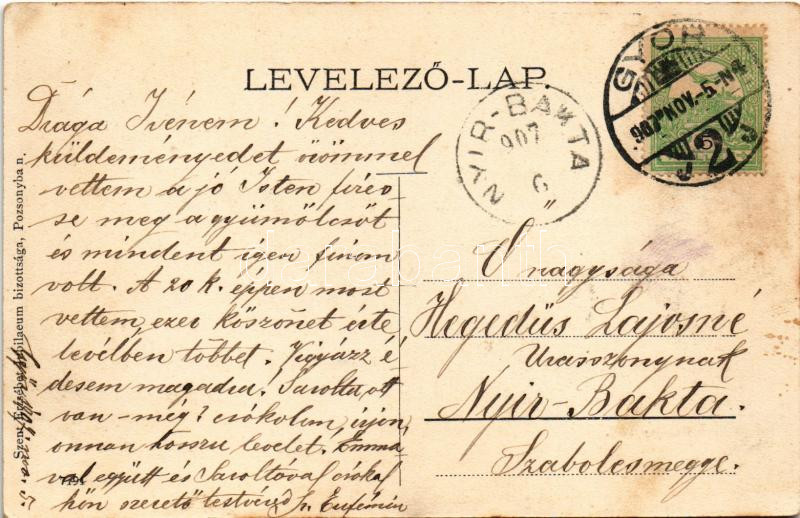 LEVELEZŐ-LAP.
GYŐR
907 NOV. -5. N4
2
NYIR-BAKTA
907
6
Drága Irénem! Kedves
küldeményedet örömmel
vettem a jó Isten fizes-
se meg a gyümölcsöt
és mindent igen finom
volt. A 20 k. éppen most
vettem, ezer köszönet érte
levélben többet. Vigyázz é
desem magadra! Sarolta ott
van-még? csókolom, írjon
onnan hosszu levelet. Emmá
val együtt és Saroltával csókol
hőn szerető testvéred Sr. Eufémia
Ő nagysága
Hegedüs Lajosné
Urasszonynak
Nyir-Bakta.
Szabolcsmegye.
Szent Erzsébet jubilaeum bizottsága, Pozsonyba n.
Győr